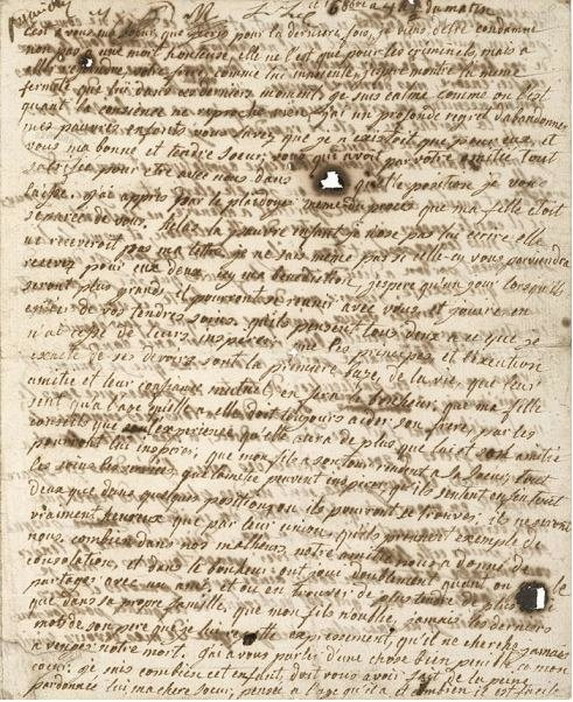 ce 16 8bre a 4 h ½ du matin
c'est a vous ma soeur, que j'ecris pour la derniere fois, je viens d'etre condamné
non pas a une mort honteuse, elle ne l'est que pour les criminels, mais a
aller rejoindre votre frere, comme lui innocente, j'espere montrer la meme
fermeté que lui dans ces derniers moments. je suis calme comme on l'est
quand la conscience ne reproche rien, j'ai un profond regret d'abandonner
mes pauvres enfants, vous savez que je n'existoit que pour eux, et
vous ma bonne et tendre soeur, vous qui avoit par votre amitie tout
sacrifie pour etre avec nous dans quelle position je vous
laisse. j'ai appris par le plaidoyer meme du proces que ma fille etoit
separée de vous. helas la pauvre enfant je n'ose pas lui ecrire elle
ne receveroit pas ma lettre je ne sais meme pas si celle-cy vous parviendra
recevez pour eux deux. icy ma benediction, j'espere qu'un jour lorsqu'ils
seront plus grands, il pourront se reunir avec vous, et jouire en
entier de vos tendres soins. qu'ils pensent tous deux a ce que je
n'ai cesse de leurs inspirer que les principes, et l'execution
exacte de ses devoirs sont la premiere base de la vie, que leur
amitie et leur confiance mutuel, en fera le bonheur, que ma fille
sent qu'a l'age qu'elle a elle doit toujours aider son frere par les
conseils que l'experience qu'elle aura de plus que lui et son amitie
pourront lui inspirer, que mon fils a son tour rendent a sa soeur, tout
les soins les services que l'amitie peuvent inspirer, qu'ils sentent enfin tout
deux que dans quelque positions ou ils pourront se trouver, ils ne seront
vraiment heureux que par leur union, qu'ils prennent exemple de
nous combien dans nos malheurs notre amitie nous a donne de
consolation, et dans le bonheur ont joui doublement quand on le
partager avec un ami, et ou en trouver de plus tendre de plus
que dans sa propre famille, que mon fils n'oublie jamais les derniers
mots de son pere que je lui repette expressement, qu'il ne cherche jamais
a venger notre mort. j'ai a vous parler d'une chose bien penible a mon
coeur. je sais combien cet enfant, doit vous avoir fait de la peine
pardonnez lui ma chere soeur, pensez a l'age qu'il a et combien il est facile